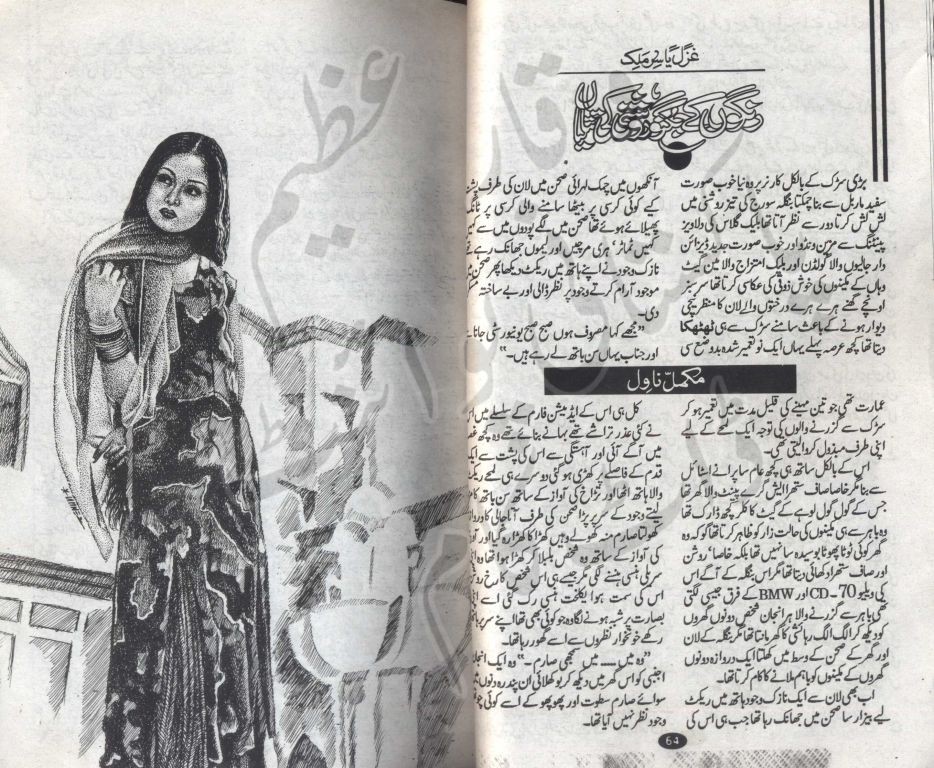 غزل یاسر ملک
رنگوں کے جگنو روشنی کی تتلیاں
بڑی سڑک کے بالکل کارنر پر وہ نیا خوب صورت
سفید ماربل سے بنا چمکتا بنگلہ سورج کی تیز روشنی میں
لش لش کرتا دور سے نظر آتا تھا بلیک گلاس کی دلاویز
پینٹنگ سے مزین ونڈو اور خوب صورت جدید ڈیزائن
دار جالیوں والا گولڈن اور بلیک امتزاج والا مین گیٹ
وہاں کے مکینوں کی خوش ذوقی کی عکاسی کرتا تھا سرسبز
اونچے گھنے ہرے ہرے درختوں والے لان کا منظر نیچی
دیوار ہونے کے باعث سامنے سڑک سے ہی ٹھٹھکا
دیتا تھا کچھ عرصہ پہلے یہاں ایک نو تعمیر شدہ بدوضع سی
آنکھوں میں چمک لہرائی صحن میں لان کی طرف پشت
کیے کوئی کرسی پر بیٹھا سامنے والی کرسی پر ٹانگ
پھیلائے ہوئے تھا صحن میں لگے پودوں میں سے کہیں
کہیں ٹماٹر، ہری مرچیں اور لیموں جھانک رہے
نازک وجود نے اپنے ہاتھ میں ریکٹ دیکھا پھر صحن
موجود آرام کرتے وجود پر نظر ڈالی اور بے ساختہ
دی۔
"مجھے کہا مصروف ہوں صبح صبح یونیورسٹی جانا۔
اور جناب یہاں سن باتھ لے رہے ہیں۔"
مکمل ناول
عمارت تھی جو تین مہینے کی قلیل مدت میں تعمیر ہو کر
سڑک سے گزرنے والوں کی توجہ ایک لمحے کے لیے
اپنی طرف مبذول کروا لیتی تھی۔
اس کے بالکل ساتھ ہی کچھ عام سا پرانے اسٹائل
سے بنا مگر خاصا صاف ستھرا ایش گرے پینٹ والا گھر تھا
جس کے گول گول لوہے کے گیٹ کا کلر کچھ ڈارک تھا
وہ باہر سے ہی مکینوں کی حالت زار کو ظاہر کرتا تھا گو کہ وہ
گھر کوئی ٹوٹا پھوٹا بوسیدہ سا نہیں تھا بلکہ خاصا، روشن
اور صاف ستھرا دکھائی دیتا تھا مگر اس بنگلہ کے آگے اس
کی ویلیو CD-70 اور BMW کے فرق جیسی لگتی
تھی باہر سے گزرنے والا ہر انجان شخص دونوں گھروں
کو دیکھ کر الگ الگ رہائشی کا گھر مانتا تھا مگر بنگلہ کے لان
اور گھر کے صحن کے وسط میں کھلتا ایک دروازہ دونوں
گھروں کے مکینوں کو باہم ملانے کا کام کرتا تھا۔
اب بھی لان سے ایک نازک وجود ہاتھ میں ریکٹ
لیے بیزار سا صحن میں جھانک رہا تھا جب ہی اس کی
کل ہی اس کے ایڈمیشن فارم کے سلسلے میں اس
نے کئی عذر تراشے تھے بہانے بنائے تھے وہ کچھ
میں آگے آئی اور آہستگی سے اس کی پشت سے ایک
قدم کے فاصلے پر کھڑی ہو گئی دوسرے ہی لمحے ریکٹ
والا ہاتھ اٹھا اور تڑاخ کی آواز کے ساتھ سن باتھ
لیتے وجود کے سر پر پڑا صحن کی طرف آتا جالی کا دروازہ
کھولتا صارم منہ کھولے وہیں کھڑا کا کھڑا رہ گیا اور
کی آواز کے ساتھ وہ شخص بلبلا کر کھڑا ہوا تھا وہ
سرلی ہنسی ہنسنے لگی مگر جیسے ہی اس شخص کا رخ
اس کی سمت ہوا یکلخت ہنسی رک گئی اسے اپنی
بصارت پر شبہ ہونے لگا وہ جو کوئی بھی تھا اپنے سر پر ہاتھ
رکھے خونخوار نظروں سے اسے گھور رہا تھا۔
"وہ میں...... میں سمجھی صارم۔" وہ ایک انجان
اجنبی کو اس گھر میں دیکھ کر بوکھلائی ان پندرہ دنوں میں
سوائے صارم سطوت اور پھوپھو کے اسے کوئی
وجود نظر نہیں آیا تھا۔
64